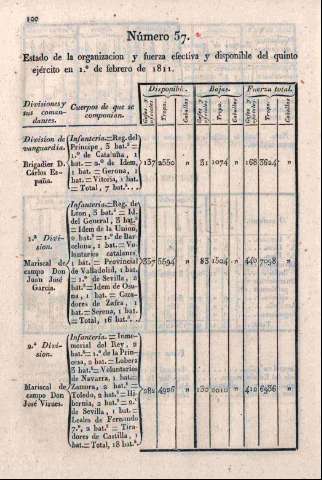 100
Número 57.
Estado de la organizacion y fuerza efectiva y disponible del quinto
ejército en 1.º de febrero de 1811.
Disponible. Bajas. Fuerza total.
Divisiones y sus comandantes.
Cuerpos de que se componian.
Gefes y oficiales Tropa. Caballos Gefes y oficiales Tropa. Caballos Gefes y oficiales Tropa. Caballos
Division de
vanguardia.
Brigadier D.
Cárlos Es-
paña.
Infantería.=Reg. del
Príncipe, 3 bat.s=
1.º de Cataluña, 1
bat.=2.º de Idem,
1 bat.=Gerona, 1
bat.=Vitoria, 1 bat.
=Total, 7 bat.s
137 2550 " 31 1074 " 168 3624 "
1.ª Divi-
sion.
Mariscal de
campo Don
Juan José
García.
Infantería.=Reg. de
Leon, 3 bat.s=Id.
del General, 3 bat.s
=Idem de la Union,
2 bat.s=1.º de Bar-
celona, 1 bat.=Vo-
luntarios catalanes,
1 bat.=Provincial
de Valladolid, 1 bat.
=1.º de Sevilla, 2
bat.s=Idem de Osu-
na, 1 bat.=Caza-
dores de Zafra, 1
bat.=Serena, 1 bat.
=Total, 16 bat.s
357 5594 " 83 1504 " 440 7098 "
2.ª Divi-
sion.
Mariscal de
campo Don
José Virues.
Infantería.=Inme-
morial del Rey, 2
bat.s=1.º de la Prin-
cesa, 2 bat.s=Lobera
3 bat.s=Voluntarios
de Navarra, 1 bat.=
Zamora, 2 bat.s=
Toledo, 2 bat.s=Hi-
bernia, 2 bat.s=2.º
de Sevilla, 1 bat.=
Leales de Fernando
7.º, 2 bat.s=Tira-
dores de Castilla, 1
bat.=Total, 18 bat.s
282 4926 " 130 2010 " 412 6936 "